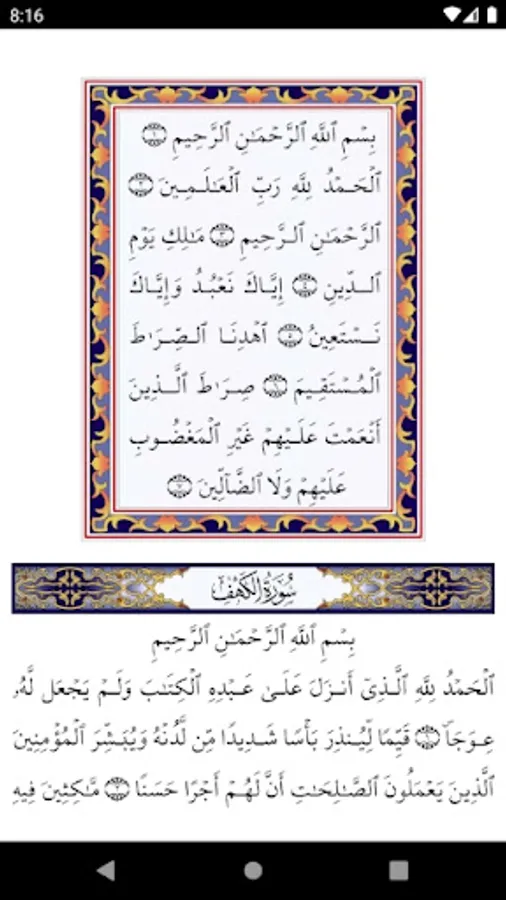 8:16
بِسْمِ ٱللَّهِ ٱلرَّحْمَـٰنِ ٱلرَّحِيمِ ١
ٱلْحَمْدُ لِلَّهِ رَبِّ ٱلْعَـٰلَمِينَ ٢
ٱلرَّحْمَـٰنِ ٱلرَّحِيمِ ٣ مَـٰلِكِ يَوْمِ
ٱلدِّينِ ٤ إِيَّاكَ نَعْبُدُ وَإِيَّاكَ
نَسْتَعِينُ ٥ ٱهْدِنَا ٱلصِّرَٰطَ
ٱلْمُسْتَقِيمَ ٦ صِرَٰطَ ٱلَّذِينَ
أَنْعَمْتَ عَلَيْهِمْ غَيْرِ ٱلْمَغْضُوبِ
عَلَيْهِمْ وَلَا ٱلضَّآلِّينَ ٧
سُورَةُ الكَهْفِ
بِسْمِ ٱللَّهِ ٱلرَّحْمَـٰنِ ٱلرَّحِيمِ
ٱلْحَمْدُ لِلَّهِ ٱلَّذِىٓ أَنزَلَ عَلَىٰ عَبْدِهِ ٱلْكِتَـٰبَ وَلَمْ يَجْعَل لَّهُۥ
عِوَجَاۜ ١ قَيِّمًا لِّيُنذِرَ بَأْسًا شَدِيدًا مِّن لَّدُنْهُ وَيُبَشِّرَ ٱلْمُؤْمِنِينَ
ٱلَّذِينَ يَعْمَلُونَ ٱلصَّـٰلِحَـٰتِ أَنَّ لَهُمْ أَجْرًا حَسَنًا ٢ مَّـٰكِثِينَ فِيهِ